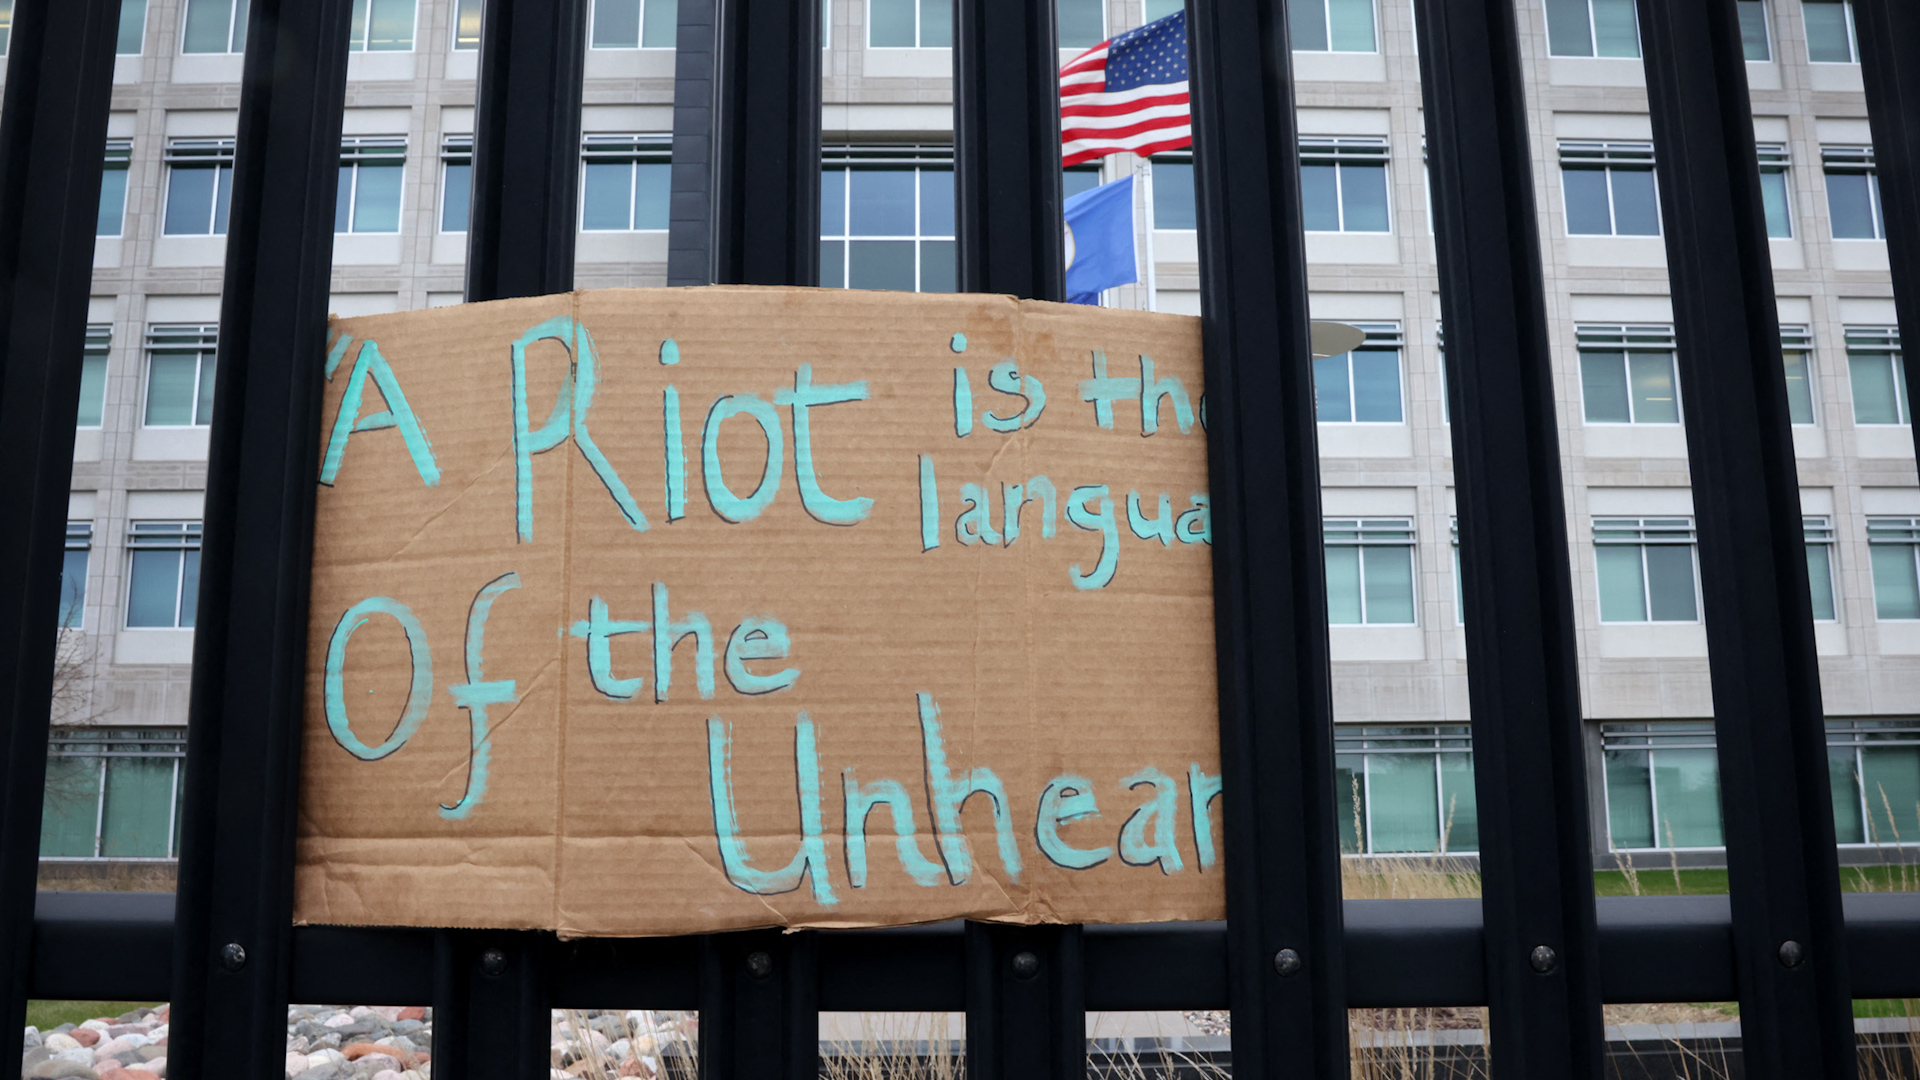 "A Riot is the
langua
Of the
Unhear